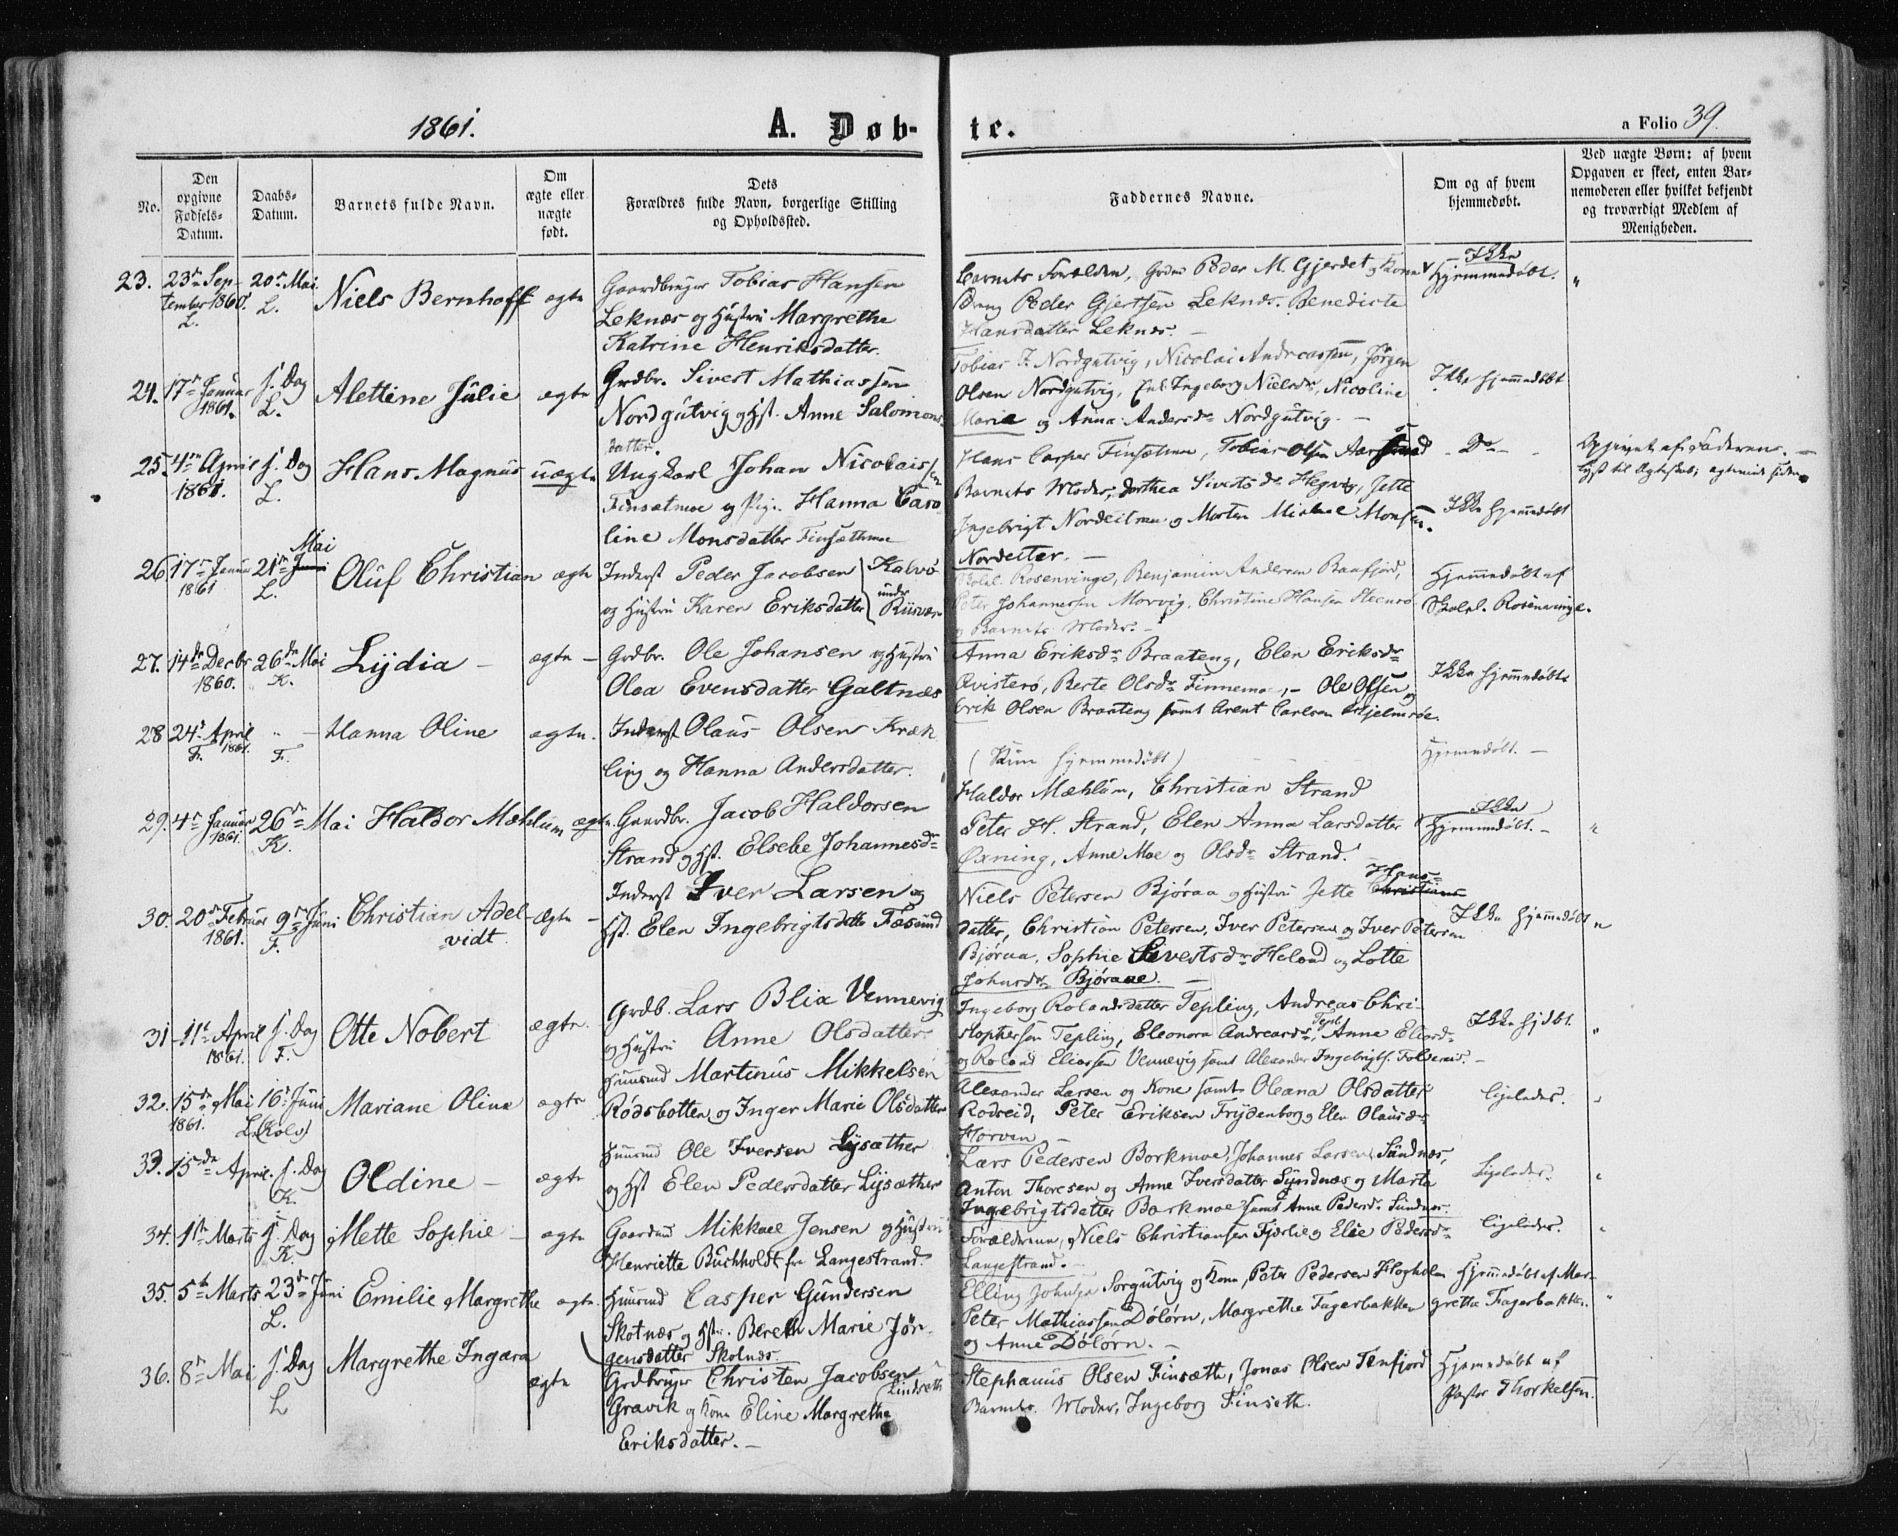 1861.
A. Døb-
te.
a Folio 39.
No.
Den opgivne Fødsels-Datum.
Daabs-Datum.
Barnets fulde Navn.
Om ægte eller uægte født.
Dets Forældres fulde Navn, borgerlige Stilling og Opholdssted.
Faddernes Navne.
Om og af hvem hjemmedøbt.
Ved uægte Børn: af hvem Opgaven er skeet, enten Barnemoderen eller hvilket bekjendt og troværdigt Medlem af Menigheden.
23. 23de September 1860. L.
20de Mai L.
Niels Bernhoff
ægte
Gaardbruger Tobias Hansen
Leknæs og Hustru Margrethe
Katrine Henriksdatter.
Barnets Forældre, Peder M. Gjerdet og Kone
Dreng Peder Gjertsen Leknæs. Benedicte
Hansdatter Leknæs. —
Ikke Hjemmedøbt.
"
24. 17de Januar 1861.
s. Dag L.
Alettine Julie
ægte
Grdbr. Sivert Mathiassen
Nordgutvig og Hst. Anne Salomons-
datter.
Tobias J. Nordgutvig, Nicolai Andreassen, Jørgen
Olsen Nordgutvig, Ingeborg Nielsdr, Nicoline
Marie og Anna Andersdr Nordgutvig. —
Ikke hjemmedøbt
25. 4de April 1861.
s. Dag L.
Hans Magnus
uægte
Ungkarl Johan Nicolaissen
Finsætmoe og Pige Hanna Caro-
line Monsdatter Finsæthmoe
Hans Casper Finsætmoe, Tobias Olsen
Barnets Moder, Dorthea Sivertsdr Hegvig, Jette
Ingebrigt Nordeitran og Morten Michael Monsen
Nordeiter. —
- Do -
Ikke hjemmedøbt
Opgivet af Faderen. —
lyst til Ægteskab; ægteviet siden
26. 17de Januar 1861
21de Mai L.
Oluf Christian
ægte
Inderst Peder Jacobsen
og Hustru Karen Eriksdatter
Kalvø under Riisvær
Rosenvinge, Benjamin Andersen
Peter Johannessen Morvig, Christine Hansen
og Barnets Moder. —
Hjemmedøbt af
Rosenvinge.
27. 14de Decbr 1860.
26de Mai K.
Lydia —
ægte —
Grdbr. Ole Johansen og Hustru
Olea Evensdatter Galtnæs
Anna Eriksdr Braateng, Elen Eriksdr
Qvisterø, Berte Olsdr Finnemo, Ole Olsen,
Erik Olsen Braateng samt Arent Carlsen Hjelmrøe.
Ikke Hjemmedøbt
28 24de April 1861. F.
" — F.
Hanna Oline
ægte.
Inderst Olaus Olsen Kræk
ling og Hanna Andersdatter.
(Kun hjemmedøbt)
Hjemmedøbt. —
29. 4de Januar 1861.
26de Mai K.
Haldor Mæhlum
ægte.
Gaardbr. Jacob Haldorsen
Strand og Hst. Elsebe Johannesdr
Haldor Mæhlum, Christian Strand
Peter H. Strand, Elen Anna Larsdatter
Øxning, Anne Moe og Olsdr Strand.
Ikke Hjemmedøbt. —
"
30. 20de Februar 1861.
9de Juni F.
Christian Adel-
vidt.
Ægte —
Inderst Iver Larsen og
Hst. Elen Ingebrigtsdatter Føsund
Niels Petersen Bjøraa og Hustru Jette Hans-
datter, Christian Petersen, Iver Petersen og Iver Petersen
Bjøraa, Sophie Sivertsdr Heland og Lotte
Johnsdr Bjøraae. —
Ikke hjemmedøbt
"
31 11te April 1861.
s. Dag F.
Otte Nobert
ægte.
Grdb. Lars Blix Vennevig
og Hustru Anne Olsdatter
Ingeborg Rolandsdatter Tepling, Andreas Chri-
stophersen Tepling, Eleonora Andreasdr Tepl, Anne Eliasdr
og Roland Eliassen Vennevig samt Alexander Ingebrigts. Foldereid. —
Ikke hjdbt.
"
32. 15de Mai 1861.
16de Juni L. (Kolv)
Mariane Oline
ægte
Huusmd Martinus Mikkelsen
Rødsbotten og Inger Marie Olsdatter
Alexander Larsen og Kone samt Oleana Olsdatter
Rodseid, Peter Eriksen Frydenborg og Elen Olausdr
Horven —
ligeledes.
"
33. 15de April.
s. Dag K.
Oldine —
ægte
Huusmd Ole Iversen Lysæther
og Hst Elen Pedersdatter Lysæther
Lars Pedersen Borkmoe, Johannes Larsen Sundnæs,
Anton Thoresen og Anne Iversdatter Syndnæs og Marta
Ingebrigtsdatter Borkmoe samt Anne Pedersdr Sundnæs.
Ligeledes.
"
34. 1ste Marts
s. Dag K.
Mette Sophie —
ægte
Gaardmd Mikkael Jensen og Hustru
Henriette Buchholdt fra Langestrand.
Forældrene, Niels Christiansen Fjærlie og Elie Pedersdr
Langestrand. —
ligeledes.
"
35. 5te Marts
23de Juni L.
Emilie Margrethe
ægte.
Huusmd Casper Gundersen
Skotnæs og Hstr. Bereth Marie Jør-
gensdatter Skotnæs
Elling Johnsen Sørgutvig og Kone, Peter Pedersen Flogholm
Peter Mathiassen Dølørn, Margrethe Fagerbakken
og Anne Dølørn. —
Hjemmedøbt af Mar-
grethe Fagerbakken.
"
36. 8de Mai
s. Dag L
Margrethe Ingara
ægte
Grdbruger Christen Jacobsen Lindseth
Gravik og Kone Eline Margrethe
Eriksdatter. —
Stephanus Olsen Finsæth, Jonas Olsen Tenfjord
Barnets Moder, Ingeborg Finseth.
Hjemmedøbt af
Pastor Thorkelsen.